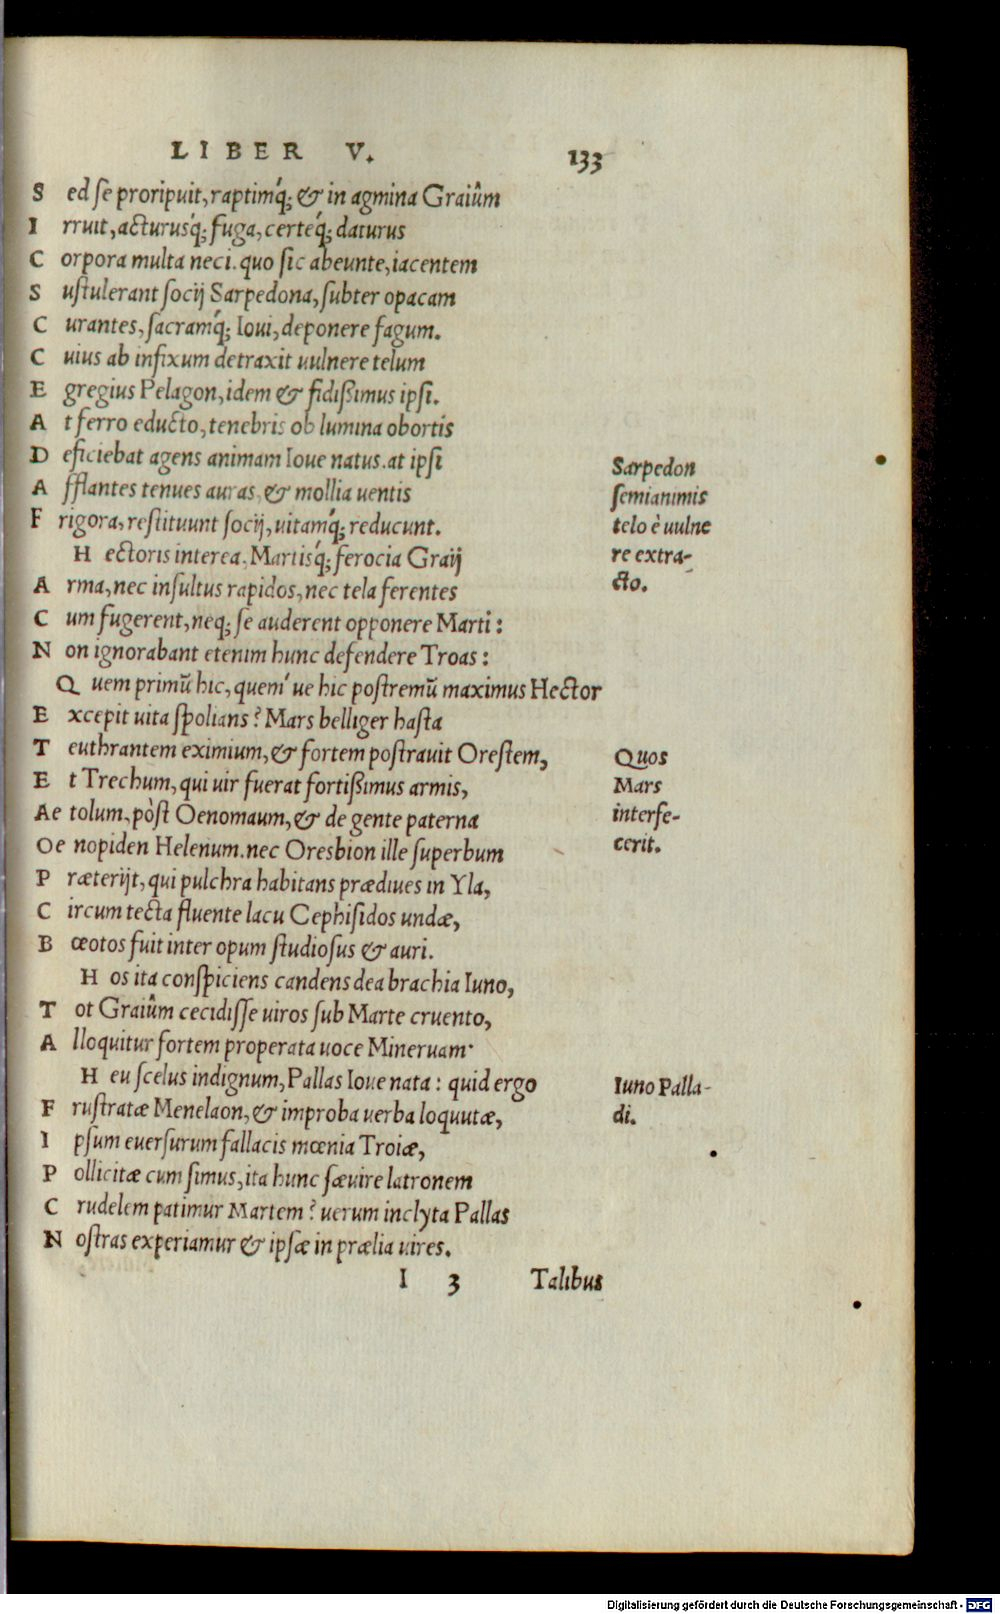 LIBER V. 133
Sed se proripuit, raptimq́; & in agmina Graiûm
Irruit, acturusq́; fuga, certeq́; daturus
Corpora multa neci. quo sic abeunte, iacentem
Sustulerant socij Sarpedona, subter opacam
Curantes, sacramq́; Ioui, deponere fagum.
Cuius ab infixum detraxit uulnere telum
Egregius Pelagon, idem & fidißimus ipsi.
At ferro educto, tenebris ob lumina obortis
Deficiebat agens animam Ioue natus. at ipsi
Afflantes tenues auras, & mollia uentis
Frigora, restituunt socij, uitamq́; reducunt.
Sarpedon
semianimis
telo è uulne
re extra-
cto.
Hectoris interea, Martisq́; ferocia Graij
Arma, nec insultus rapidos, nec tela ferentes
Cum fugerent, neq; se auderent opponere Marti:
Non ignorabant etenim hunc defendere Troas:
Quem primū hic, quem´ue hic postremū maximus Hector
Excepit uita spolians? Mars belliger hasta
Teuthrantem eximium, & fortem postrauit Orestem,
Et Trechum, qui uir fuerat fortißimus armis,
Aetolum, pòst Oenomaum, & de gente paterna
Oenopiden Helenum. nec Oresbion ille superbum
Quos
Mars
interfe-
cerit.
Præterijt, qui pulchra habitans prædiues in Yla,
Circum tecta fluente lacu Cephisidos undæ,
Bœotos fuit inter opum studiosus & auri.
Hos ita conspiciens candens dea brachia Iuno,
Tot Graiûm cecidisse uiros sub Marte cruento,
Alloquitur fortem properata uoce Mineruam·
Heu scelus indignum, Pallas Ioue nata: quid ergo
Frustratæ Menelaon, & improba uerba loquutæ,
Iuno Palla-
di.
Ipsum euersurum fallacis mœnia Troiæ,
Pollicitæ cum simus, ita hunc sæuire latronem
Crudelem patimur Martem? uerum inclyta Pallas
Nostras experiamur & ipsæ in prælia uires.
I 3 Talibus
Digitalisierung gefördert durch die Deutsche Forschungsgemeinschaft - DFG